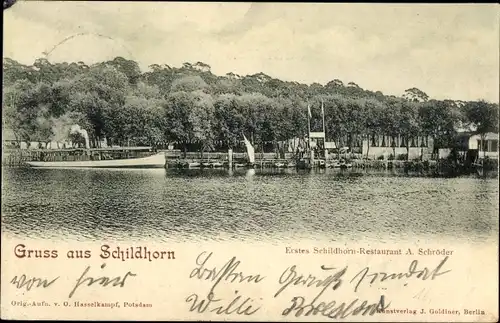 Gruss aus Schildhorn
Erstes Schildhorn-Restaurant A. Schröder
von hier besten Gruß sendet
Willy
Orig.-Aufn. v. O. Hasselkampf, Potsdam
Kunstverlag J. Goldiner, Berlin